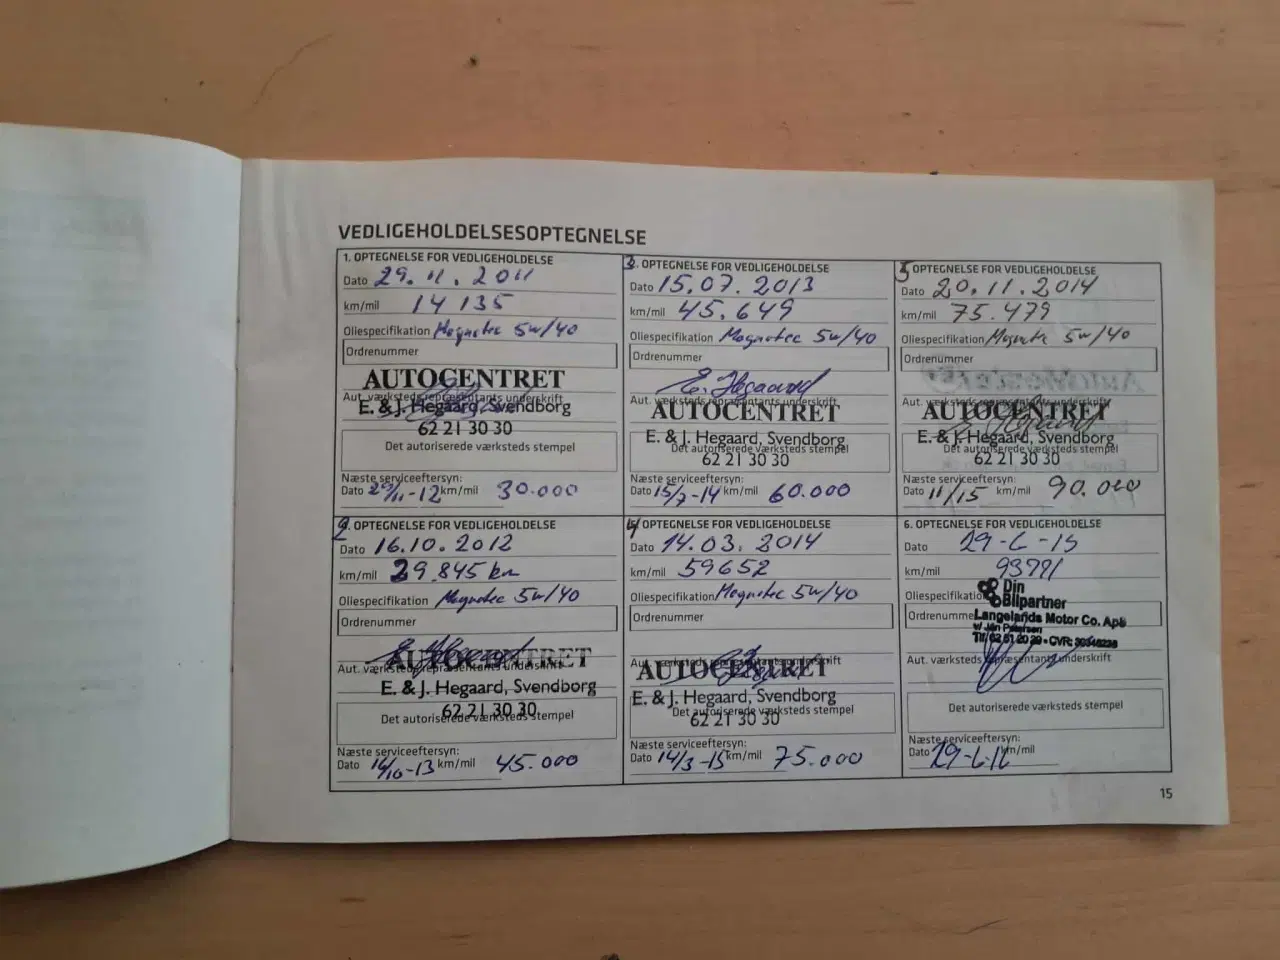 VEDLIGEHOLDELSESOPTEGNELSE
1. OPTEGNELSE FOR VEDLIGEHOLDELSE
Dato 29.11.2011
km/mil 14 135
Oliespecifikation Magnatec 5w/40
Ordrenummer
AUTOCENTRET
Aut. værksteds repræsentants underskrift
E. & J. Hegaard, Svendborg
62 21 30 30
Det autoriserede værksteds stempel
Næste serviceeftersyn:
Dato 29/11-12 km/mil 30.000
2. OPTEGNELSE FOR VEDLIGEHOLDELSE
Dato 16.10.2012
km/mil 29.845 km
Oliespecifikation Magnatec 5w/40
Ordrenummer
AUTOCENTRET
Aut. værksteds repræsentants underskrift
E. & J. Hegaard, Svendborg
62 21 30 30
Det autoriserede værksteds stempel
Næste serviceeftersyn:
Dato 16/10-13 km/mil 45.000
3. OPTEGNELSE FOR VEDLIGEHOLDELSE
Dato 15.07.2013
km/mil 45.649
Oliespecifikation Magnatec 5w/40
Ordrenummer
E. Hegaard
Aut. værksteds repræsentants underskrift
AUTOCENTRET
E. & J. Hegaard, Svendborg
Det autoriserede værksteds stempel
62 21 30 30
Næste serviceeftersyn:
Dato 15/7-14 km/mil 60.000
4. OPTEGNELSE FOR VEDLIGEHOLDELSE
Dato 14.03.2014
km/mil 59652
Oliespecifikation Magnatec 5w/40
Ordrenummer
Aut. værksteds repræsentants underskrift
AUTOCENTRET
E. & J. Hegaard, Svendborg
Det autoriserede værksteds stempel
62 21 30 30
Næste serviceeftersyn:
Dato 14/3-15 km/mil 75.000
5 OPTEGNELSE FOR VEDLIGEHOLDELSE
Dato 20.11.2014
km/mil 75.479
Oliespecifikation Magnatec 5w/40
Ordrenummer
Aut. værksteds repræsentants underskrift
AUTOCENTRET
E. & J. Hegaard, Svendborg
Det autoriserede værksteds stempel
62 21 30 30
Næste serviceeftersyn:
Dato 11/15 km/mil 90.000
6. OPTEGNELSE FOR VEDLIGEHOLDELSE
Dato 29-6-15
km/mil 93791
Oliespecifikation
Din
Bilpartner
Ordrenummer
Langelands Motor Co. ApS
v/ Jan Petersen
Aut. værksteds repræsentants underskrift
Det autoriserede værksteds stempel
Næste serviceeftersyn:
Dato 29-6-16 km/mil
15